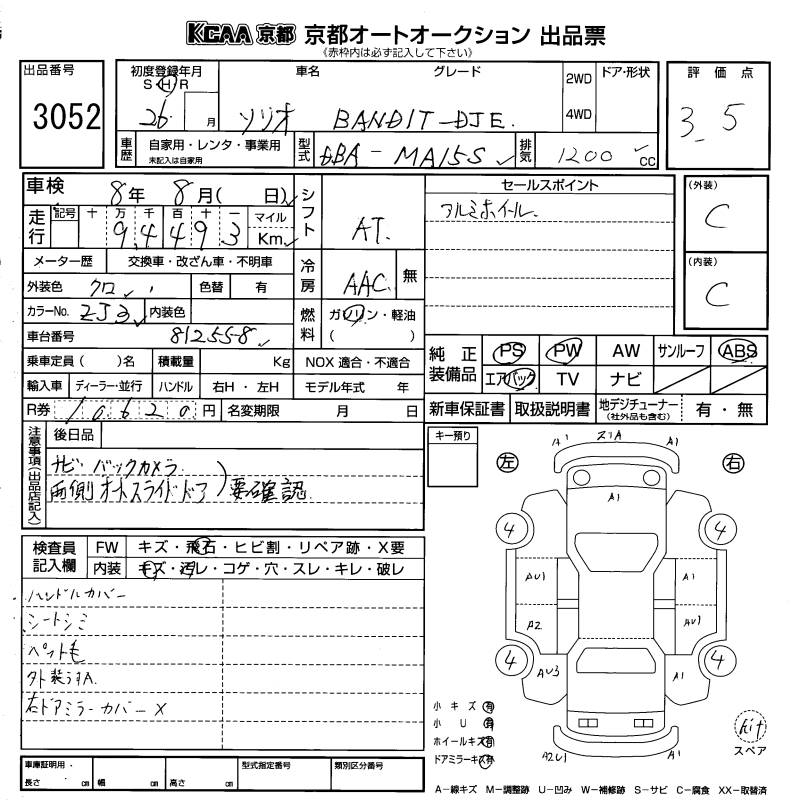 KCAA 京都 京都オートオークション 出品票
(赤枠内は必ず記入して下さい)
出品番号
3052
初度登録年月
S H R
26 月
車名
ソリオ
グレード
BANDIT-DJE
2WD
4WD
ドア・形状
評価点
3.5
車歴
自家用・レンタ・事業用
未記入は自家用
型式
DBA-MA15S
排気
1200 CC
車検
8年 8月( 日)
走行
記号 十 万 千 百 十 一
9 4 4 9 3
マイル
Km
メーター歴 交換車・改ざん車・不明車
外装色 クロ 色替 有
カラーNo. ZJ3 内装色
車台番号 812558
乗車定員( )名 積載量 Kg
NOX 適合・不適合
輸入車 ディーラー・並行 ハンドル 右H・左H
モデル年式 年
R券 10620円 名変期限 月 日
シフト
AT
冷房
AAC 無
燃料
ガソリン・軽油
( )
セールスポイント
アルミホイール
(外装)
C
(内装)
C
純正装備品
PS PW AW サンルーフ ABS
エアバック TV ナビ
新車保証書 取扱説明書 地デジチューナー
(社外品も含む)
有・無
注意事項(出品店記入)
後日品
ナビ バックカメラ
両側オートスライドドア) 要確認
検査員記入欄
FW キズ・飛石・ヒビ割・リペア跡・X要
内装 キズ・汚レ・コゲ・穴・スレ・キレ・破レ
ハンドルカバー
シートシミ
ペット毛
外装うすA
右ドアミラーカバーX
キー預り
左
右
A1 A1
A1
4 4
AU1 A1
A2 AU1
4 4
AU3 A1
A2U1 A1
小キズ 有
小U 有
ホイールキズ 有
ドアミラーキズ 有
kit
スペア
車庫証明用・
長さ cm 幅 cm 高さ cm
型式指定番号
類別区分番号
A−線キズ M−調整跡 U−凹み W−補修跡 S−サビ C−腐食 XX−取替済